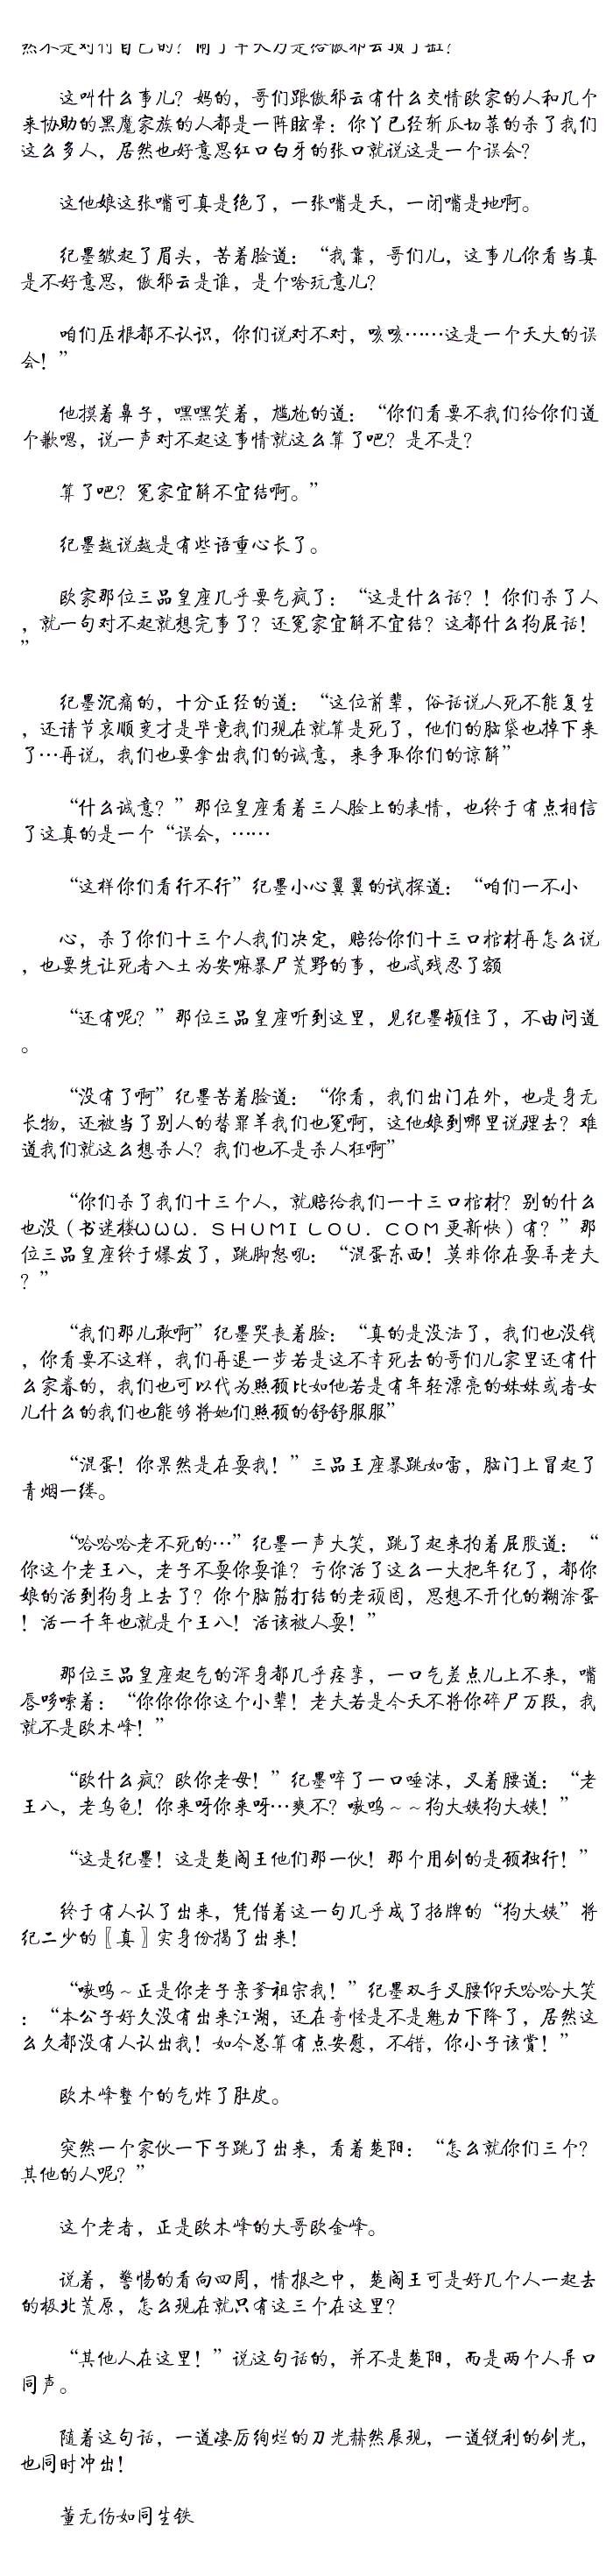 这叫什么事儿？妈的，哥们跟傲邪云有什么交情欧家的人和几个
来协助的黑魔家族的人都是一阵眩晕：你丫已经斩瓜切菜的杀了我们
这么多人，居然也好意思红口白牙的张口就说这是一个误会？
这他娘这张嘴可真是绝了，一张嘴是天，一闭嘴是地啊。
纪墨皱起了眉头，苦着脸道：“我靠，哥们儿，这事儿你看当真
是不好意思，傲邪云是谁，是个啥玩意儿？
咱们压根都不认识，你们说对不对，咳咳……这是一个天大的误
会！”
他摸着鼻子，嘿嘿笑着，尴尬的道：“你们看要不我们给你们道
个歉嗯，说一声对不起这事情就这么算了吧？是不是？
算了吧？冤家宜解不宜结啊。”
纪墨越说越是有些语重心长了。
欧家那位三品皇座几乎要气疯了：“这是什么话？！你们杀了人
，就一句对不起就想完事了？还冤家宜解不宜结？这都什么狗屁话！
”
纪墨沉痛的，十分正经的道：“这位前辈，俗话说人死不能复生
，还请节哀顺变才是毕竟我们现在就算是死了，他们的脑袋也掉下来
了…再说，我们也要拿出我们的诚意，来争取你们的谅解”
“什么诚意？”那位皇座看着三人脸上的表情，也终于有点相信
了这真的是一个“误会，……
“这样你们看行不行”纪墨小心翼翼的试探道：“咱们一不小
心，杀了你们十三个人我们决定，赔给你们十三口棺材再怎么说
，也要先让死者入土为安嘛暴尸荒野的事，也忒残忍了额
“还有呢？”那位三品皇座听到这里，见纪墨顿住了，不由问道
。
“没有了啊”纪墨苦着脸道：“你看，我们出门在外，也是身无
长物，还被当了别人的替罪羊我们也冤啊，这他娘到哪里说理去？难
道我们就这么想杀人？我们也不是杀人狂啊”
“你们杀了我们十三个人，就赔给我们一十三口棺材？别的什么
也没（书迷楼ＷＷＷ．ＳＨＵＭＩＬＯＵ．ＣＯＭ更新快）有？”那
位三品皇座终于爆发了，跳脚怒吼：“混蛋东西！莫非你在耍弄老夫
？”
“我们那儿敢啊”纪墨哭丧着脸：“真的是没法了，我们也没钱
，你看要不这样，我们再退一步若是这不幸死去的哥们儿家里还有什
么家眷的，我们也可以代为照顾比如他若是有年轻漂亮的妹妹或者女
儿什么的我们也能够将她们照顾的舒舒服服”
“混蛋！你果然是在耍我！”三品王座暴跳如雷，脑门上冒起了
青烟一缕。
“哈哈哈老不死的…”纪墨一声大笑，跳了起来拍着屁股道：“
你这个老王八，老子不耍你耍谁？亏你活了这么一大把年纪了，都你
娘的活到狗身上去了？你个脑筋打结的老顽固，思想不开化的糊涂蛋
！活一千年也就是个王八！活该被人耍！”
那位三品皇座起气的浑身都几乎痉挛，一口气差点儿上不来，嘴
唇哆嗦着：“你你你你这个小辈！老夫若是今天不将你碎尸万段，我
就不是欧木峰！”
“欧什么疯？欧你老母！”纪墨啐了一口唾沫，叉着腰道：“老
王八，老乌龟！你来呀你来呀…爽不？嗷呜～～狗大姨狗大姨！”
“这是纪墨！这是楚阎王他们那一伙！那个用剑的是顾独行！”
终于有人认了出来，凭借着这一句几乎成了招牌的“狗大姨”将
纪二少的〖真〗实身份揭了出来！
“嗷呜～正是你老子亲爹祖宗我！”纪墨双手叉腰仰天哈哈大笑
：“本公子好久没有出来江湖，还在奇怪是不是魅力下降了，居然这
么久都没有人认出我！如今总算有点安慰，不错，你小子该赏！”
欧木峰整个的气炸了肚皮。
突然一个家伙一下子跳了出来，看着楚阳：“怎么就你们三个？
其他的人呢？”
这个老者，正是欧木峰的大哥欧金峰。
说着，警惕的看向四周，情报之中，楚阎王可是好几个人一起去
的极北荒原，怎么现在就只有这三个在这里？
“其他人在这里！”说这句话的，并不是楚阳，而是两个人异口
同声。
随着这句话，一道凄厉绚烂的刀光赫然展现，一道锐利的剑光，
也同时冲出！
董无伤如同生铁